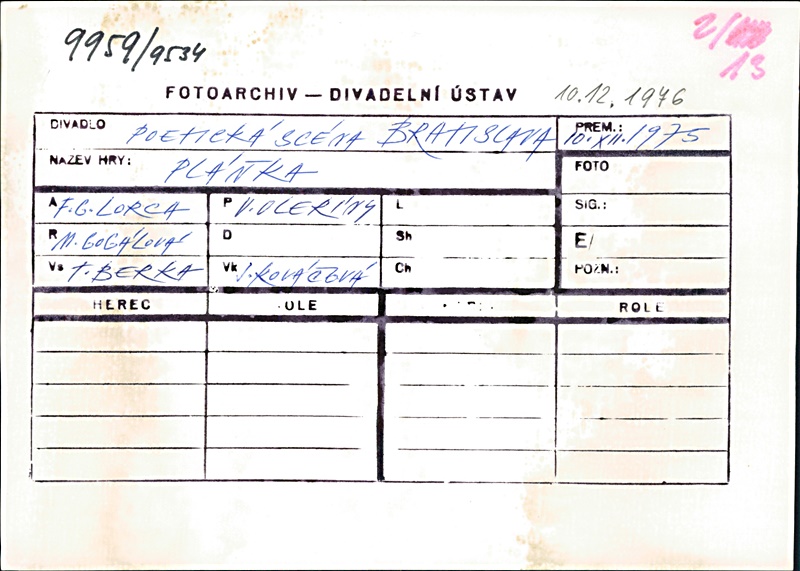 9959/9534
2/
13
FOTOARCHIV — DIVADELNÍ ÚSTAV 10.12.1976
DIVADLO POETICKÁ SCÉNA BRATISLAVA PREM.: 10.XII.1975
NÁZEV HRY: PLÁŇKA FOTO
A F.G.LORCA P V.OLERÍNY L SIG.:
R M.GOGÁLOVÁ D Sh E/
Vs T.BERKA Vk J.KOVÁČOVÁ Ch POZN.:
HEREC OLE ROLE